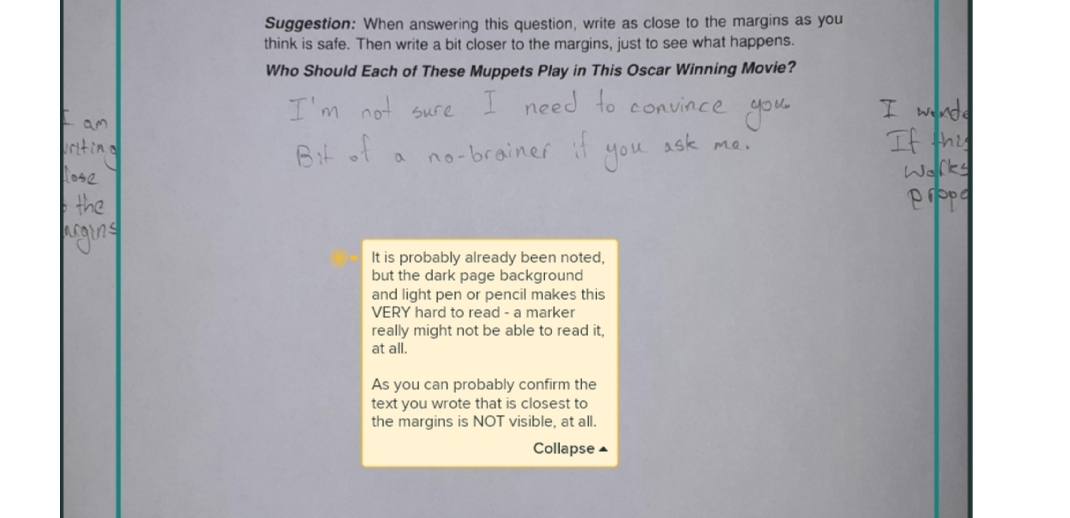 Suggestion: When answering this question, write as close to the margins as you
think is safe. Then write a bit closer to the margins, just to see what happens.
Who Should Each of These Muppets Play in This Oscar Winning Movie?
I'm not sure I need to convince you.
Bit of a no-brainer if you ask me.
I am
writing
lose
the
argins
I wonde
If this
works
prope
It is probably already been noted,
but the dark page background
and light pen or pencil makes this
VERY hard to read - a marker
really might not be able to read it,
at all.
As you can probably confirm the
text you wrote that is closest to
the margins is NOT visible, at all.
Collapse